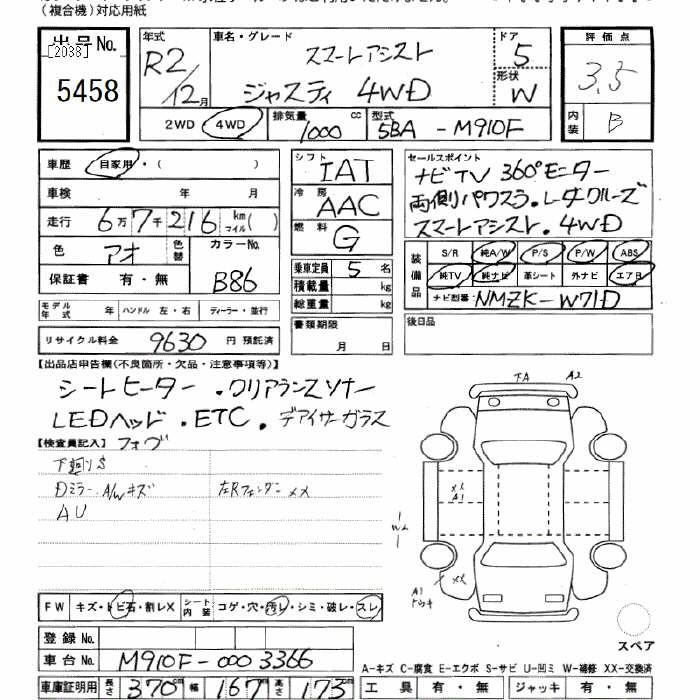 (複合機)対応用紙
出品No.
[2038]
5458
年式
R2/12月
車名・グレード
スマートアシスト
ジャスティ 4WD
ドア
5
形状
W
2WD 4WD
排気量
1000 cc
型式
5BA - M910F
評価点
3.5
内装
B
車歴 自家用・( )
車検 年 月
走行 6万7千216 km マイル( )
色 アオ 色替
カラーNo.
B86
保証書 有・無
モデル年式 年 ハンドル 左・右 ディーラー・並行
リサイクル料金 9630 円 預託済
シフト IAT
冷房 AAC
燃料 G
乗車定員 5 名
積載量 kg
総重量 kg
書類期限
月 日
セールスポイント
ナビTV 360°モニター
両側パワスラ.レーダクルーズ
スマートアシスト.4WD
装備品
S/R 純A/W P/S P/W ABS
純TV 純ナビ 革シート 外ナビ エアB
ナビ型番: NMZK-W71D
後日品
【出品店申告欄(不良箇所・欠品・注意事項等)】
シートヒーター .クリアランスソナー
LEDヘッド .ETC. デアイサーガラス
【検査員記入】 フォグ
下廻りS
Dミラー A/Wキズ
左Rフェンダー XX
AU
FW キズ・トビ石・割レX
シート内装 コゲ・穴・汚レ・シミ・破レ・スレ
登録No.
車台No. M910F-0003366
車庫証明用 長さ 370cm 幅 167cm 高さ 173cm
A2
XX
A1
W2
XX
A1
スペア
A-キズ C-腐食 E-エクボ S-サビ U-凹ミ W-補修 XX-交換済
工具 有・無 ジャッキ 有・無